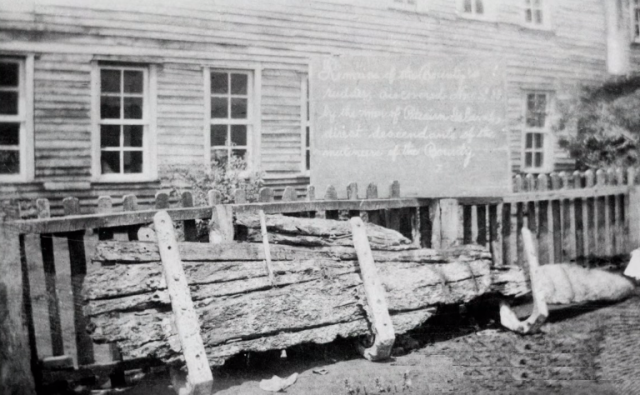 Remains of the Bounty's
rudder discovered
by the men of Pitcairn Island
direct descendants of the
mutineers of the Bounty